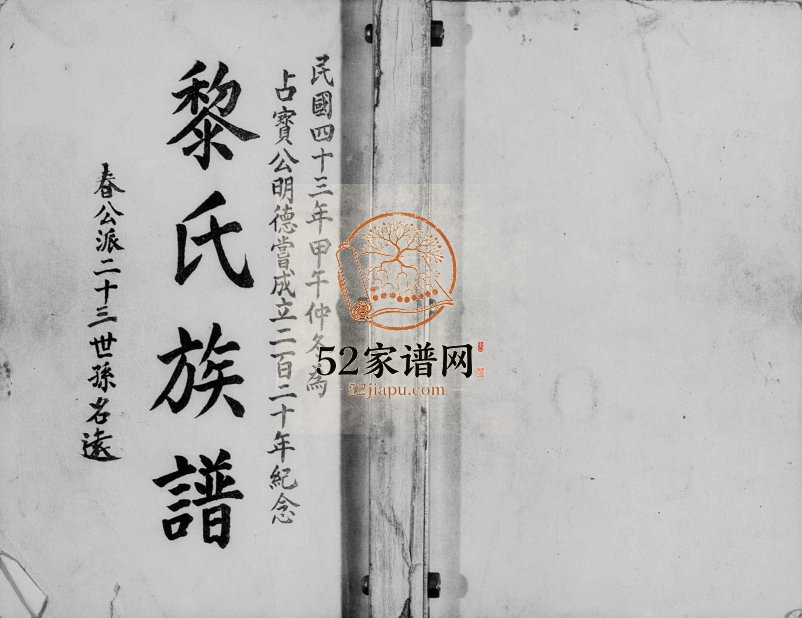 民國四十三年甲午仲冬為
占寶公明德嘗成立二百二十年紀念
黎氏族譜
春公派二十三世孫名遠
52家谱网
52jiapu.com